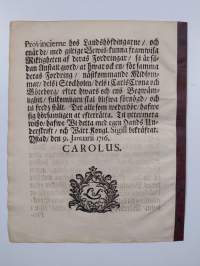 Provincierne hos Landshöfdingarne / och
enär de / med giltige Bewis kunna framwisa
Riktigheten af deras Fordringar / så är så-
dan Anstalt giord / at hwar och en / för samma
deras Fordring / nästkommande Midsom-
mar / dels i Stockholm / dels i Carls Crona och
Götheborg / efter hwars och ens Beqwäm-
ighet / fulkomligen skal blifwa förnögd / och
til freds stält. Det alle som wederbör / hafwe
sig hörsamligen at efterrätta. Til yttermera
wisso / hafwe Wi detta med egen Hands Un-
derskrift / och Wårt Kongl. Sigill bekräftat.
Ystad / den 9. Januarii 1716.
CAROLUS.